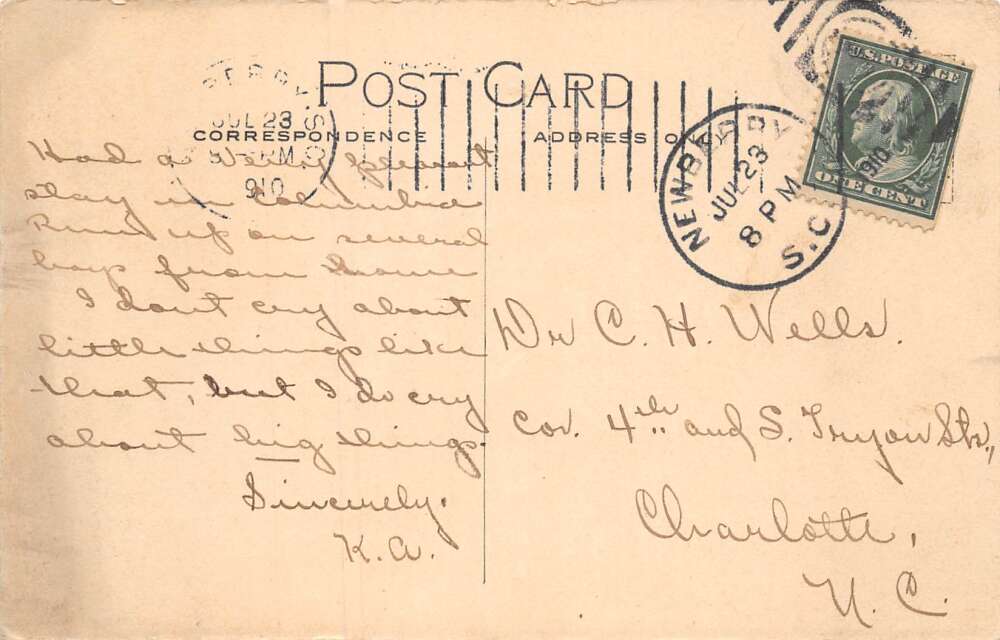 POST CARD
CORRESPONDENCE
ADDRESS O
JUL 23
M
910
S.C.
NEWBERRY
JUL 23
8 PM
1910
S.C.
U.S. POSTAGE
ONE CENT
Had a very pleasant
stay in Columbia
Run up on several
boys from home
I don't cry about
little things like
that, but I do cry
about big things.
Sincerely.
K.A.
Dr C. H. Wells.
Cor. 4th and S. Tryon Sts.,
Charlotte,
N. C.